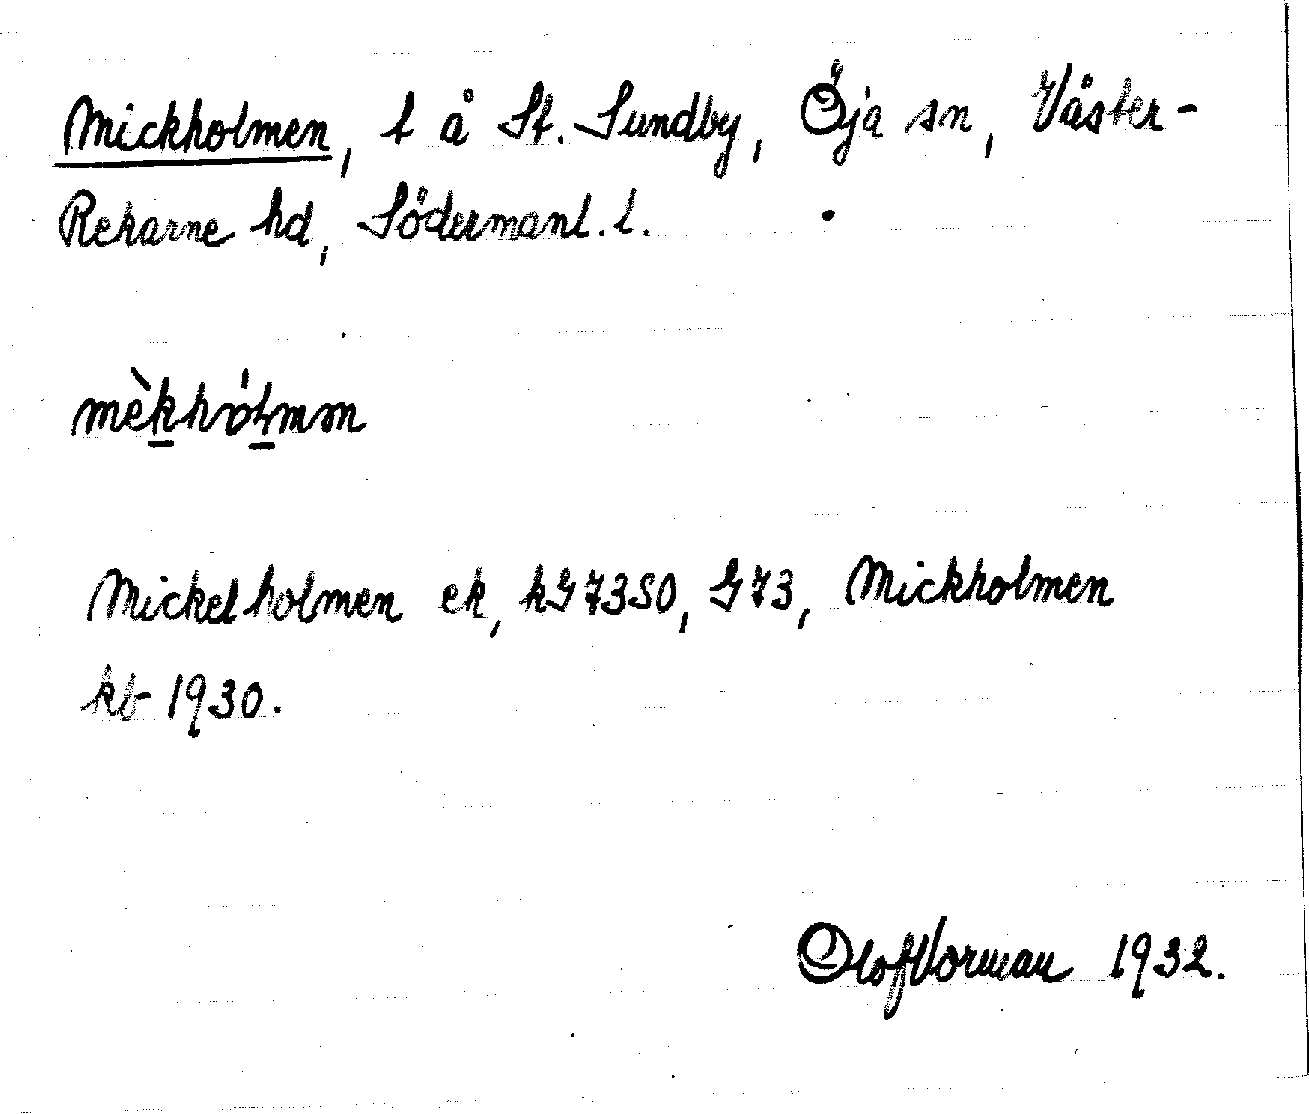 Mickholmen, t å St. Sundby, Öja sn, Väster-
Rekarne hd, Södermanl. l.
mèkhólmən
Mickelholmen ek, kG 73 SO, G 73, Mickholmen
kb 1930.
Olof Vorman 1932.